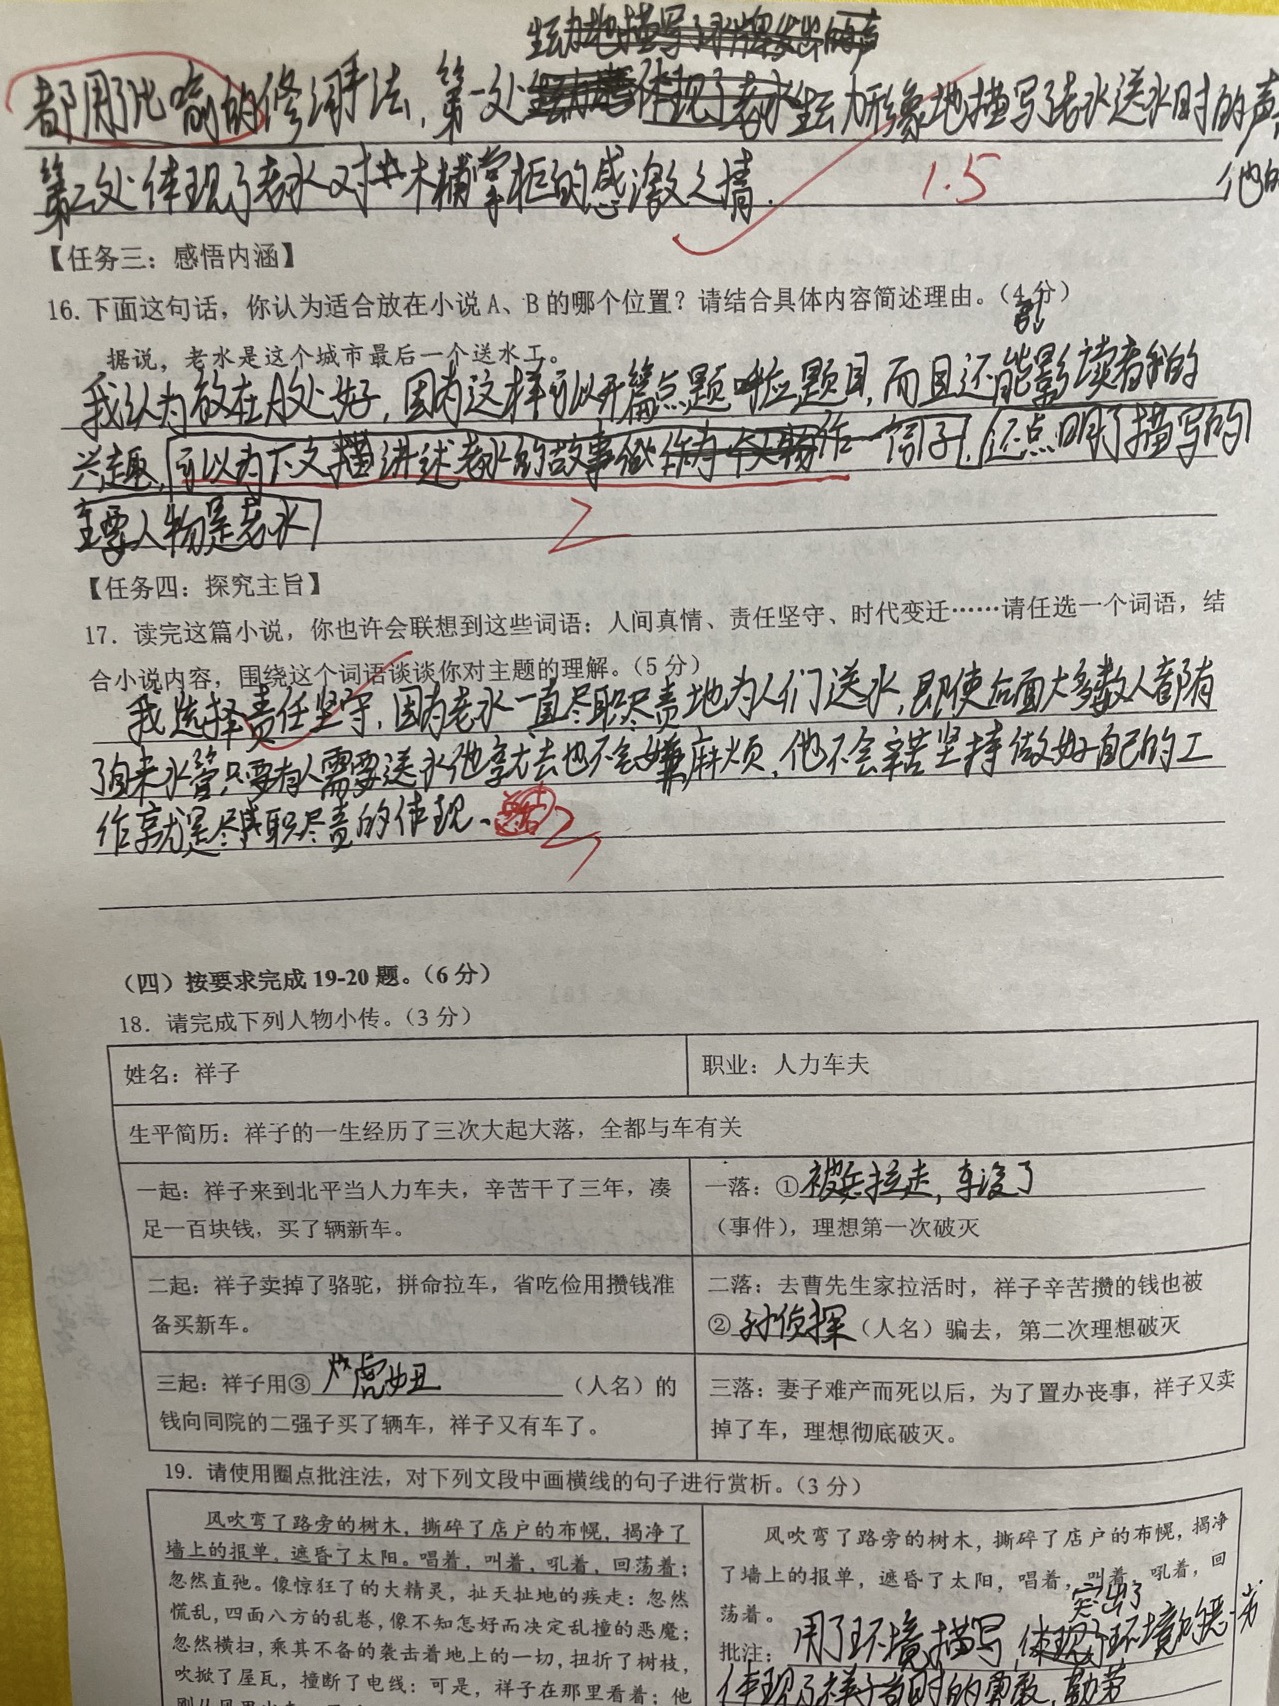 生动地描写了水牌发出的声
都用了比喻的修词手法,第一处生动形象地描写了老水送水时的声
第二处体现了老水对木桶掌柜的感激之情.
1.5
他的
【任务三：感悟内涵】
16. 下面这句话，你认为适合放在小说 A、B 的哪个位置？请结合具体内容简述理由。（4 分）
据说，老水是这个城市最后一个送水工。
我认为放在A处好,因为这样可以开篇点题呼应题目,而且还能影读者我的
兴趣,可以为下文讲述老水的故事做作一个引子.还点明了描写的
主要人物是老水
2
【任务四：探究主旨】
17. 读完这篇小说，你也许会联想到这些词语：人间真情、责任坚守、时代变迁……请任选一个词语，结
合小说内容，围绕这个词语谈谈你对主题的理解。（5 分）
我选择责任坚守,因为老水一直尽职尽责地为人们送水,即使后面大多数人都有
了自来水管只要有人需要送水他就去也不会嫌麻烦,他不会辛苦坚持做好自己的工
作就是尽职尽责的体现、
2
（四）按要求完成 19-20 题。（6 分）
18. 请完成下列人物小传。（3 分）
姓名：祥子
职业：人力车夫
生平简历：祥子的一生经历了三次大起大落，全都与车有关
一起：祥子来到北平当人力车夫，辛苦干了三年，凑
足一百块钱，买了辆新车。
一落：①被兵拉走,车没了
（事件），理想第一次破灭
二起：祥子卖掉了骆驼，拼命拉车，省吃俭用攒钱准
备买新车。
二落：去曹先生家拉活时，祥子辛苦攒的钱也被
②孙侦探（人名）骗去，第二次理想破灭
三起：祥子用③虎妞（人名）的
钱向同院的二强子买了辆车，祥子又有车了。
三落：妻子难产而死以后，为了置办丧事，祥子又卖
掉了车，理想彻底破灭。
19. 请使用圈点批注法，对下列文段中画横线的句子进行赏析。（3 分）
风吹弯了路旁的树木，撕碎了店户的布幌，揭净了
墙上的报单，遮昏了太阳。唱着，叫着，吼着，回荡着；
忽然直弛。像惊狂了的大精灵，扯天扯地的疾走；忽然
慌乱，四面八方的乱卷，像不知怎好而决定乱撞的恶魔；
忽然横扫，乘其不备的袭击着地上的一切，扭折了树枝，
吹掀了屋瓦，撞断了电线；可是，祥子在那里看着；他
风吹弯了路旁的树木，撕碎了店户的布幌，揭净
了墙上的报单，遮昏了太阳，唱着，叫着，吼着，回
荡着。
突出了
批注：用了环境描写,体现了环境的恶劣
体现了祥子当时的勇敢,勤劳